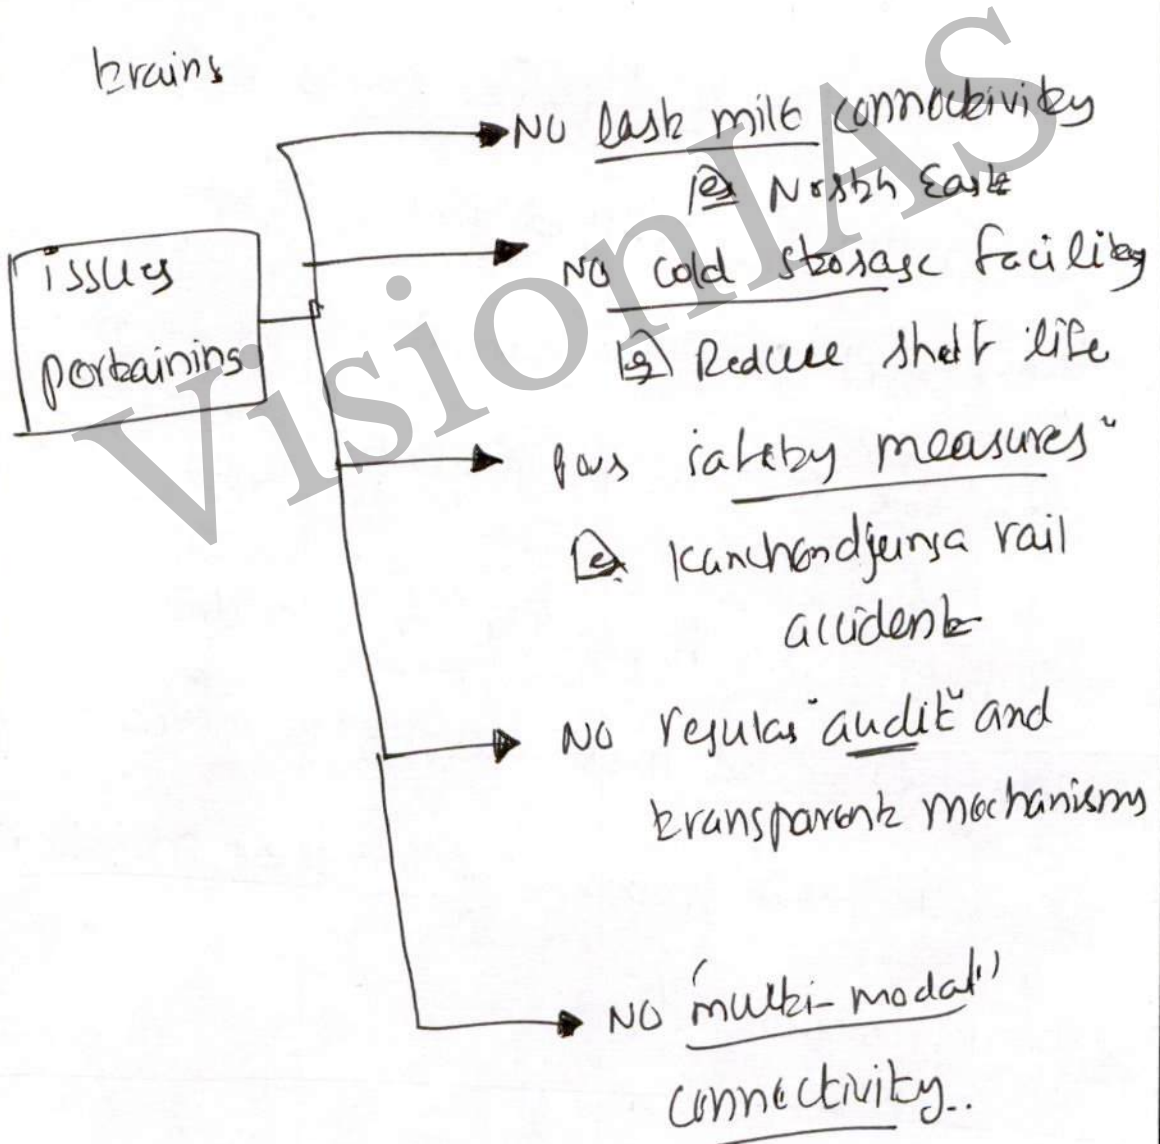 trains
NO last mile connectivity
eg North East
issues
pertaining
NO cold storage facility
eg Reduce shelf life
safety measures"
eg Kanchandjunga rail
accident
NO regular "audit" and
transparent mechanisms
NO "multi-modal"
connectivity..
VisionIAS